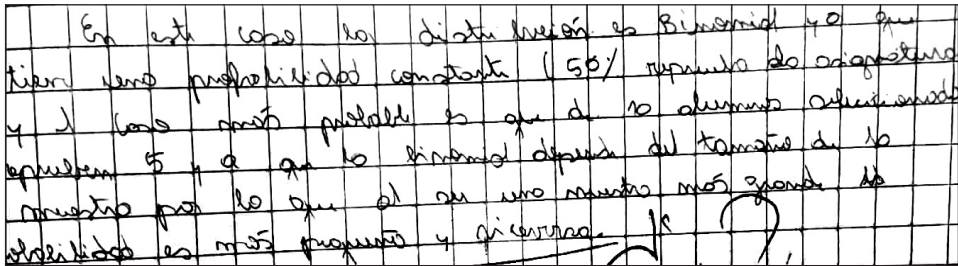 En este caso la distribución es Binomial ya que
tiene una probabilidad constante (50% reprueba la asignatura
y el caso más probable es que de 10 alumnos seleccionados
aprueben 5 ya que la binomial depende del tamaño de la
muestra por lo que al ser una muestra más grande la
probabilidad es más pequeña y viceversa.